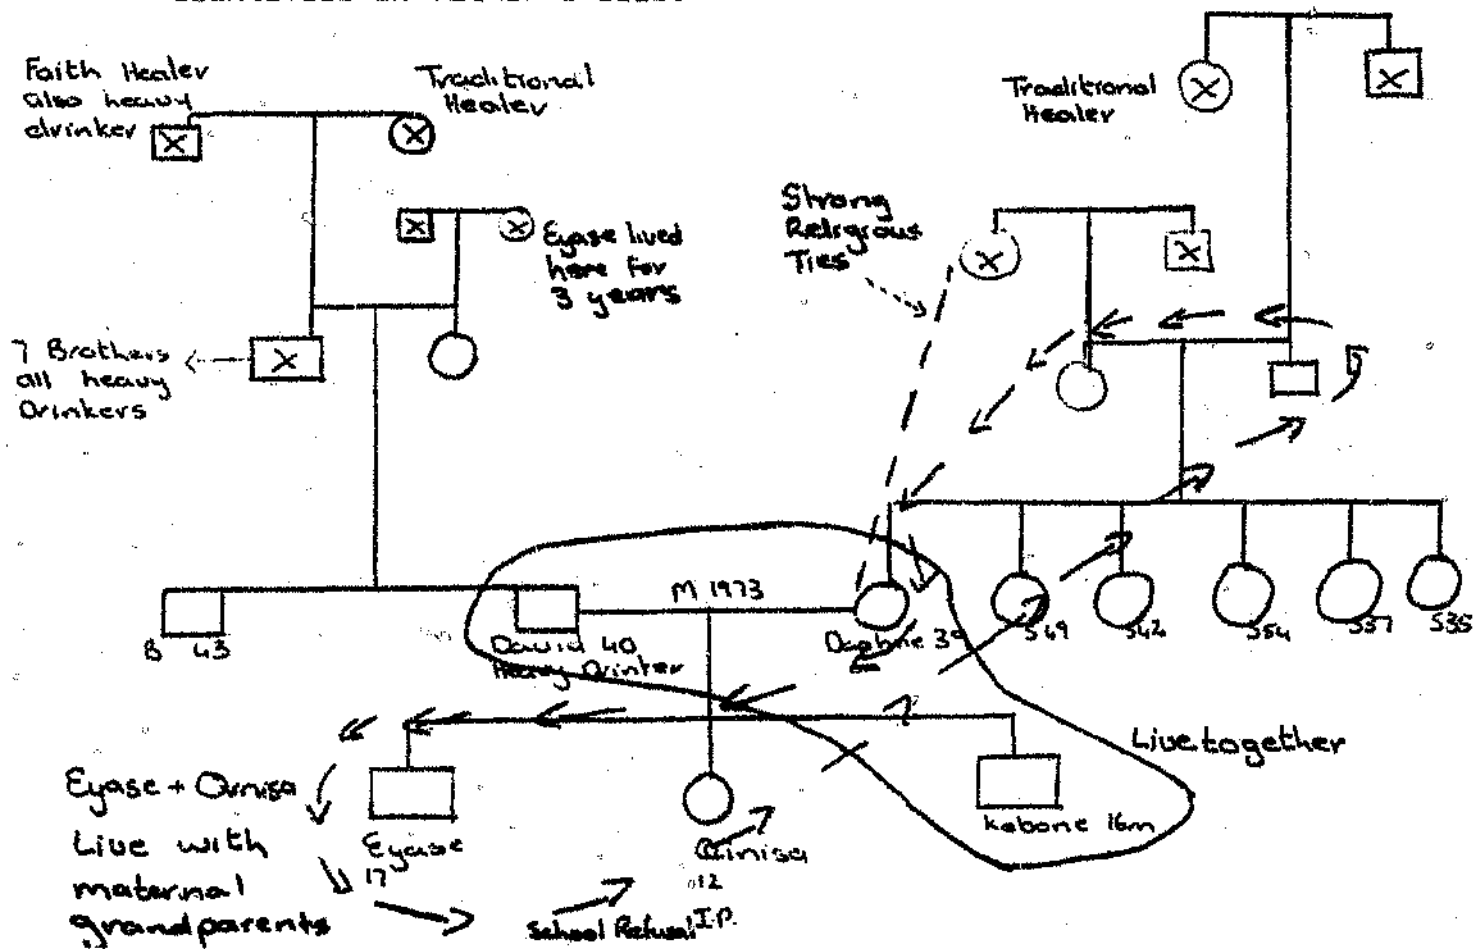 Faith Healer
also heavy
drinker
Traditional
Healer
Traditional
Healer
Eyase lived
here for
3 years
Strong
Religious
Ties
7 Brothers
all heavy
Drinkers
M 1973
B 43
David 40
Heavy Drinker
Daphne 39
S49
S42
S54
S37
S35
Live together
Eyase + Ornisa
Live with
maternal
grandparents
Eyase
17
Ornisa
12
Kabone 16m
School Refusal I.P.